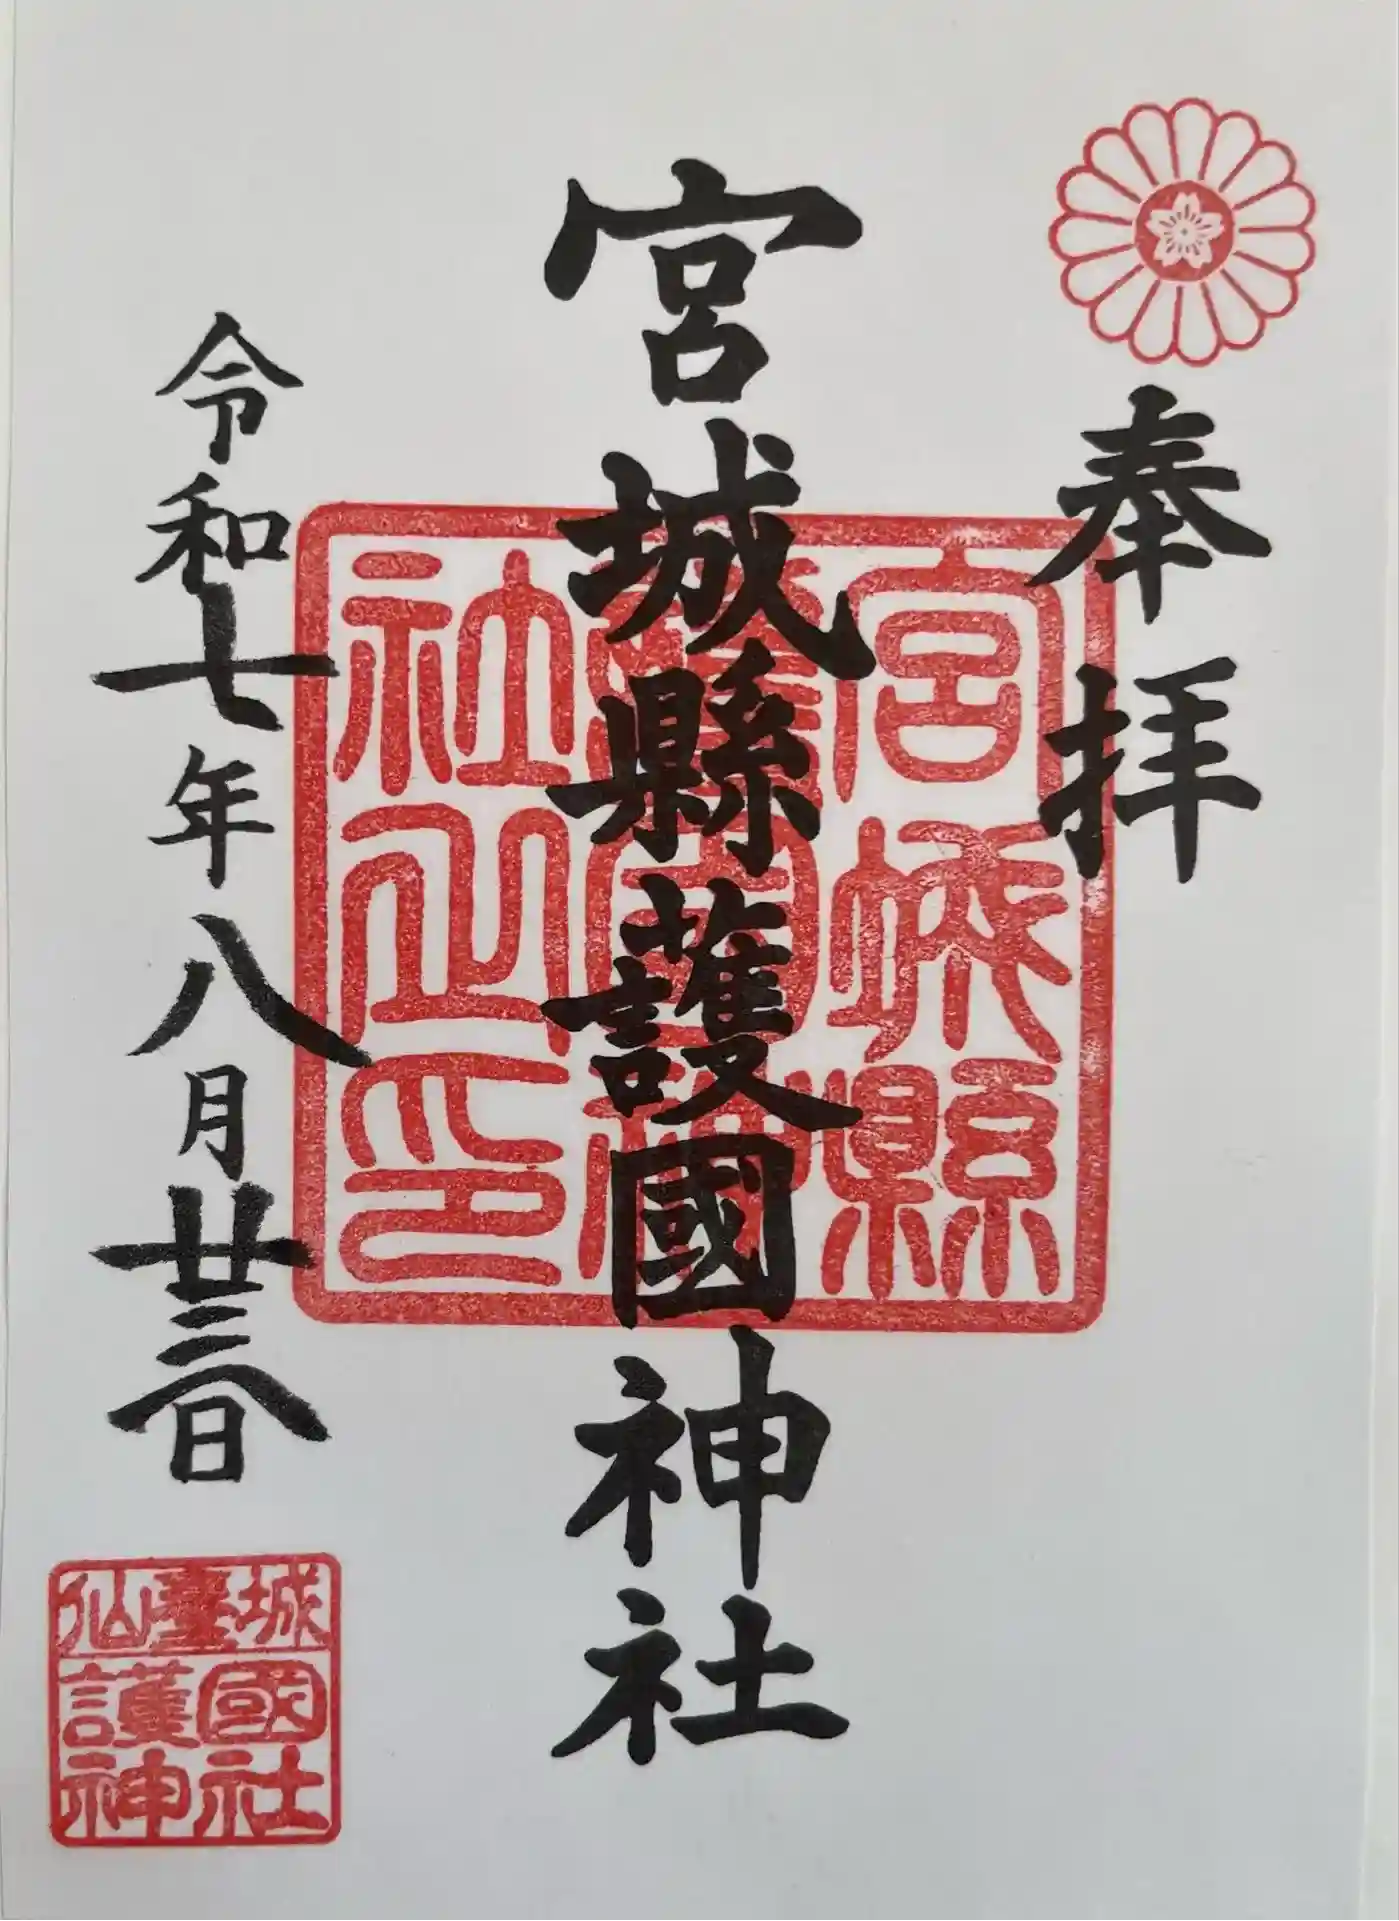 奉拝
宮城縣護國神社
令和七年八月廿三日
宮城縣
護國神
社之印
仙臺城
護國
神社